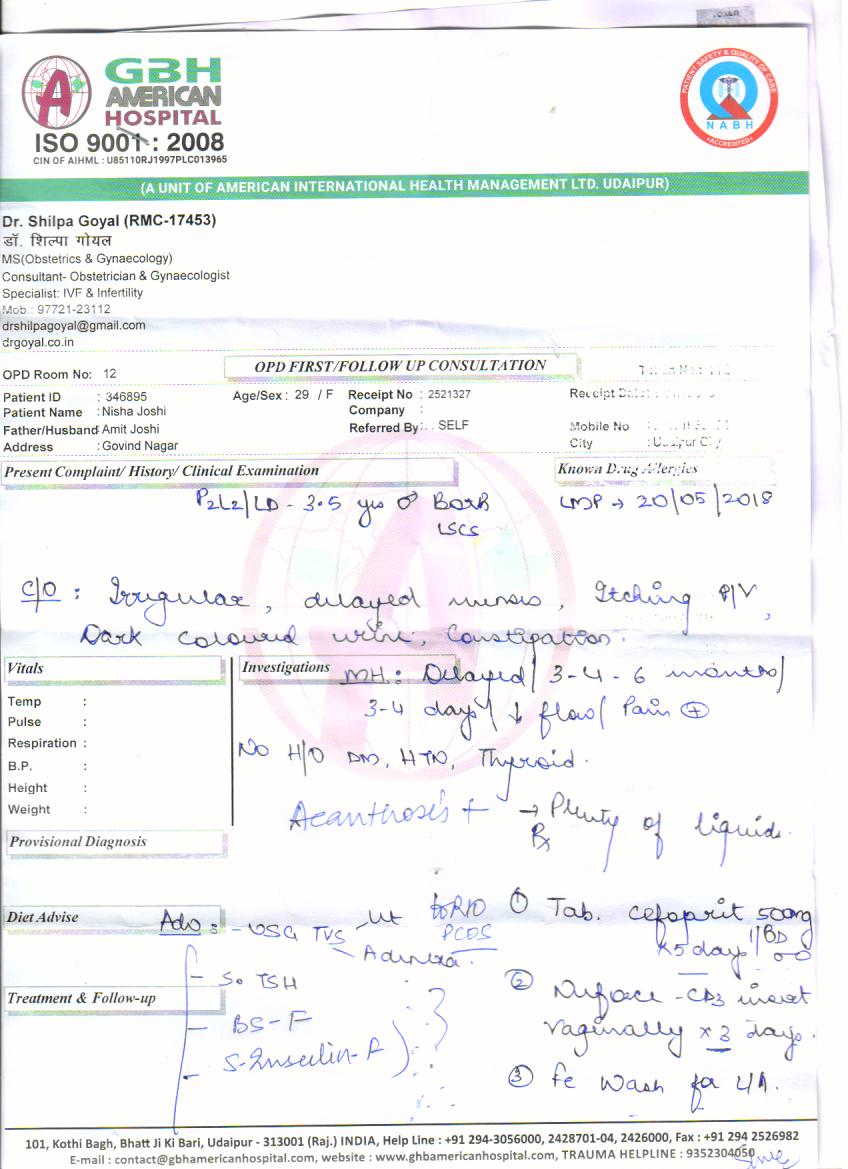 GBH
AMERICAN
HOSPITAL
ISO 9001 : 2008
CIN OF AIHML : U85110RJ1997PLC013965
PATIENT SAFETY & QUALITY OF CARE
NABH
ACCREDITED
(A UNIT OF AMERICAN INTERNATIONAL HEALTH MANAGEMENT LTD. UDAIPUR)
Dr. Shilpa Goyal (RMC-17453)
डॉ. शिल्पा गोयल
MS(Obstetrics & Gynaecology)
Consultant- Obstetrician & Gynaecologist
Specialist: IVF & Infertility
Mob.: 97721-23112
drshilpagoyal@gmail.com
drgoyal.co.in
OPD Room No: 12 OPD FIRST/FOLLOW UP CONSULTATION
Patient ID : 346895 Age/Sex : 29 / F Receipt No : 2521327 Receipt Date:
Patient Name : Nisha Joshi Company :
Father/Husband Amit Joshi Referred By: SELF Mobile No :
Address : Govind Nagar City : Udaipur City
Present Complaint/ History/ Clinical Examination Known Drug Allergies
P2L2/LD - 3.5 yrs ♂ Both LMP → 20/05/2018
LSCS
C/O : Irregular, delayed menses, Itching P/V,
Dark coloured urine, Constipation.
Vitals Investigations MH : Delayed/ 3-4-6 months/
Temp : 3-4 days/ ↓ flow/ Pain ⊕
Pulse :
Respiration : No H/O DM, HTN, Thyroid.
B.P. :
Height :
Weight : Acanthosis + → Plenty of liquids.
Rx
Provisional Diagnosis
Diet Advise Adv : - USG TVS Ut to R/O PCOS ① Tab. 500mg
Adnexa. x 5 days BD
- S. TSH
Treatment & Follow-up ② -CD3 insert
- BS-F vaginally x 3 days.
- S-Insulin-F
③ Wash for L/A.
101, Kothi Bagh, Bhatt Ji Ki Bari, Udaipur - 313001 (Raj.) INDIA, Help Line : +91 294-3056000, 2428701-04, 2426000, Fax : +91 294 2526982
E-mail : contact@gbhamericanhospital.com, website : www.ghbamericanhospital.com, TRAUMA HELPLINE : 9352304050